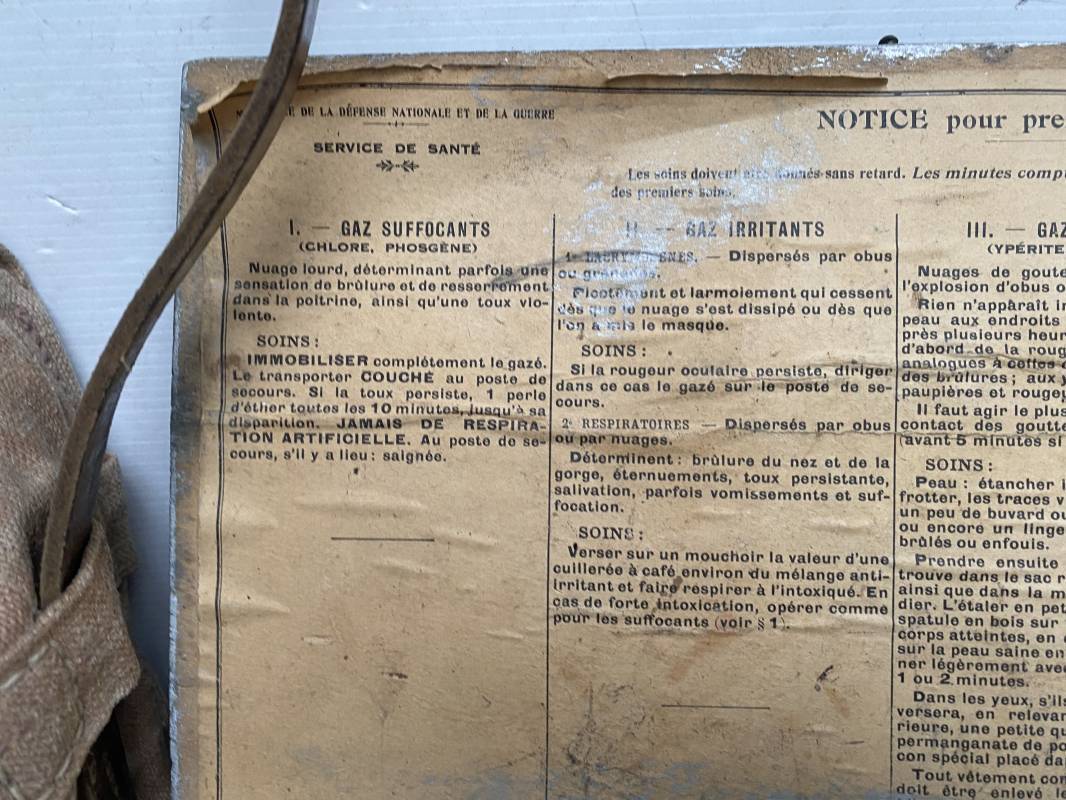 E DE LA DÉFENSE NATIONALE ET DE LA GUERRE
SERVICE DE SANTÉ
NOTICE pour pre
Les soins doivent être donnés sans retard. Les minutes compt
des premiers soins.
I. — GAZ SUFFOCANTS
(CHLORE, PHOSGÈNE)
Nuage lourd, déterminant parfois une
sensation de brûlure et de resserrement
dans la poitrine, ainsi qu'une toux vio-
lente.
SOINS :
IMMOBILISER complétement le gazé.
Le transporter COUCHÉ au poste de
secours. Si la toux persiste, 1 perle
d'éther toutes les 10 minutes, jusqu'à sa
disparition. JAMAIS DE RESPIRA-
TION ARTIFICIELLE. Au poste de se-
cours, s'il y a lieu : saignée.
II. — GAZ IRRITANTS
1° LACRYMOGÈNES. — Dispersés par obus
ou grenades.
Picotement et larmoiement qui cessent
dès que le nuage s'est dissipé ou dès que
l'on a mis le masque.
SOINS :
Si la rougeur oculaire persiste, diriger
dans ce cas le gazé sur le poste de se-
cours.
2° RESPIRATOIRES — Dispersés par obus
ou par nuages.
Déterminent : brûlure du nez et de la
gorge, éternuements, toux persistante,
salivation, parfois vomissements et suf-
focation.
SOINS :
Verser sur un mouchoir la valeur d'une
cuillerée à café environ du mélange anti-
irritant et faire respirer à l'intoxiqué. En
cas de forte intoxication, opérer comme
pour les suffocants (voir § 1).
III. — GAZ
(YPÉRITE
Nuages de goute
l'explosion d'obus o
Rien n'apparaît in
peau aux endroits
près plusieurs heur
d'abord de la roug
analogues à celles d
des brûlures ; aux y
paupières et rouge
Il faut agir le plus
contact des goutte
(avant 5 minutes si
SOINS :
Peau : étancher
frotter, les traces v
un peu de buvard ou
ou encore un linge
brûlés ou enfouis.
Prendre ensuite
trouve dans le sac r
ainsi que dans la m
dier. L'étaler en pet
spatule en bois sur
corps atteintes, en
sur la peau saine en
ner légèrement ave
1 ou 2 minutes.
Dans les yeux, s'ils
versera, en relevan
rieure, une petite qu
permanganate de po
con spécial placé da
Tout vêtement con
doit être enlevé le